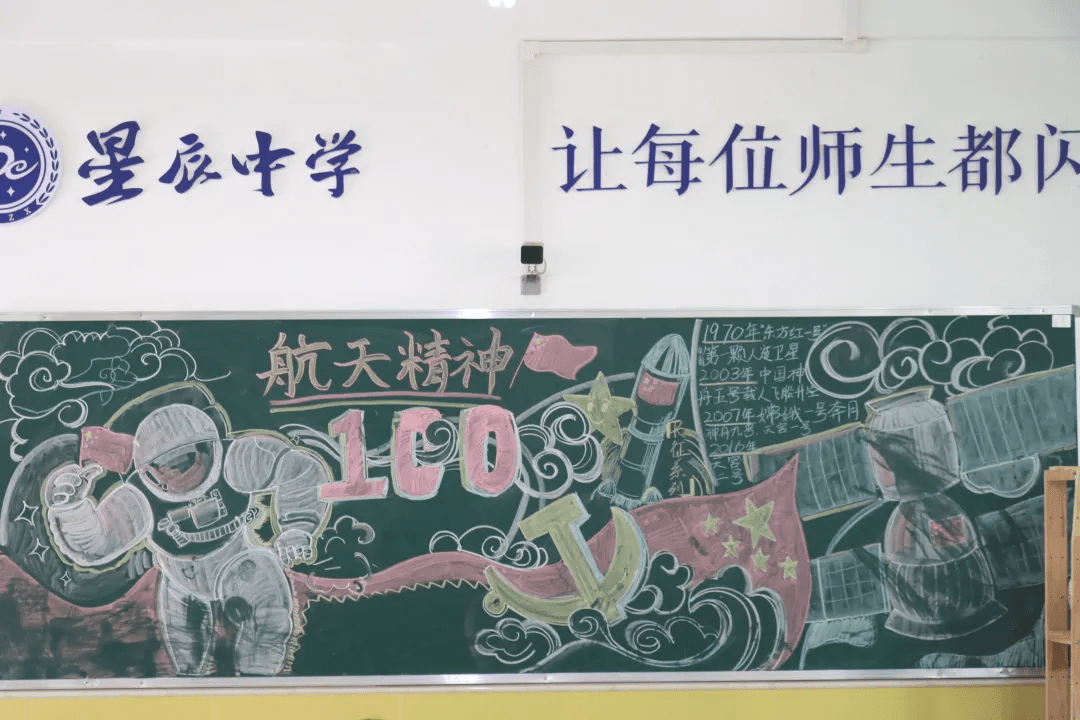 星辰中学
让每位师生都闪
Z X
航天精神
100
1970年"东方红一号"
第一颗人造卫星
2003年中国神
舟五号载人飞船升空
2007年嫦娥一号奔月
神舟九号 天宫一号
2016年
天宫
二号
长征系列